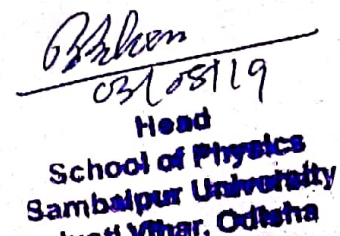 03/05/19
Head
School of Physics
Sambalpur University
Jyoti Vihar, Odisha